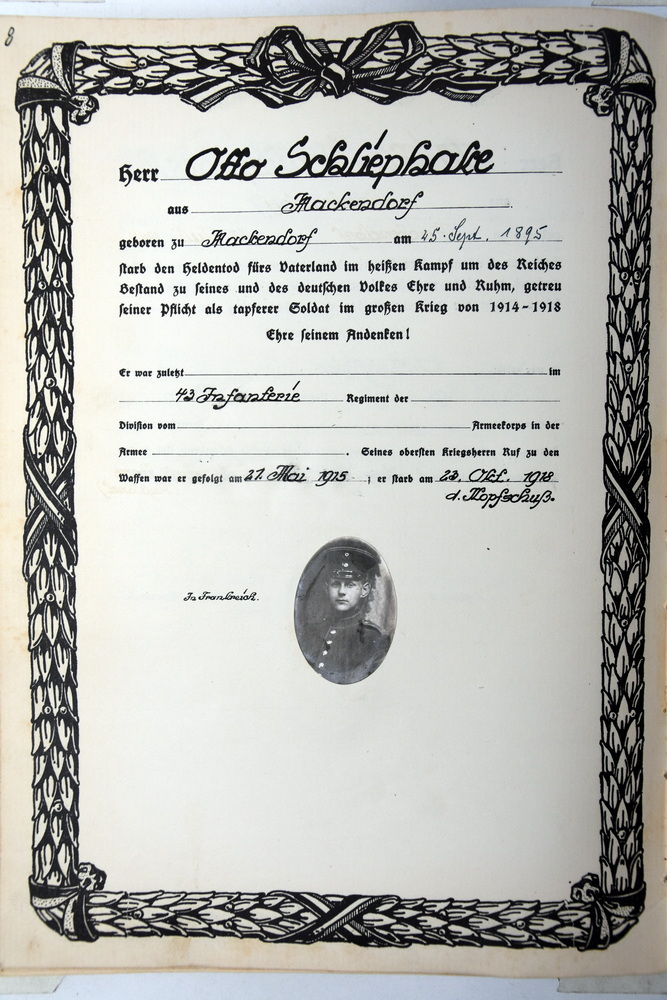 8
Herr Otto Schliephake
aus Mackendorf
geboren zu Mackendorf am 25. Sept. 1895
starb den Heldentod fürs Vaterland im heißen Kampf um des Reiches
Bestand zu seines und des deutschen Volkes Ehre und Ruhm, getreu
seiner Pflicht als tapferer Soldat im großen Krieg von 1914-1918
Ehre seinem Andenken!
Er war zuletzt im
43 Infanterie Regiment der
Division vom Armeekorps in der
Armee . Seines obersten Kriegsherrn Ruf zu den
Waffen war er gefolgt am 21. Mai 1915 ; er starb am 23. Okt. 1918
d. Kopfschuß.
In Frankreich.